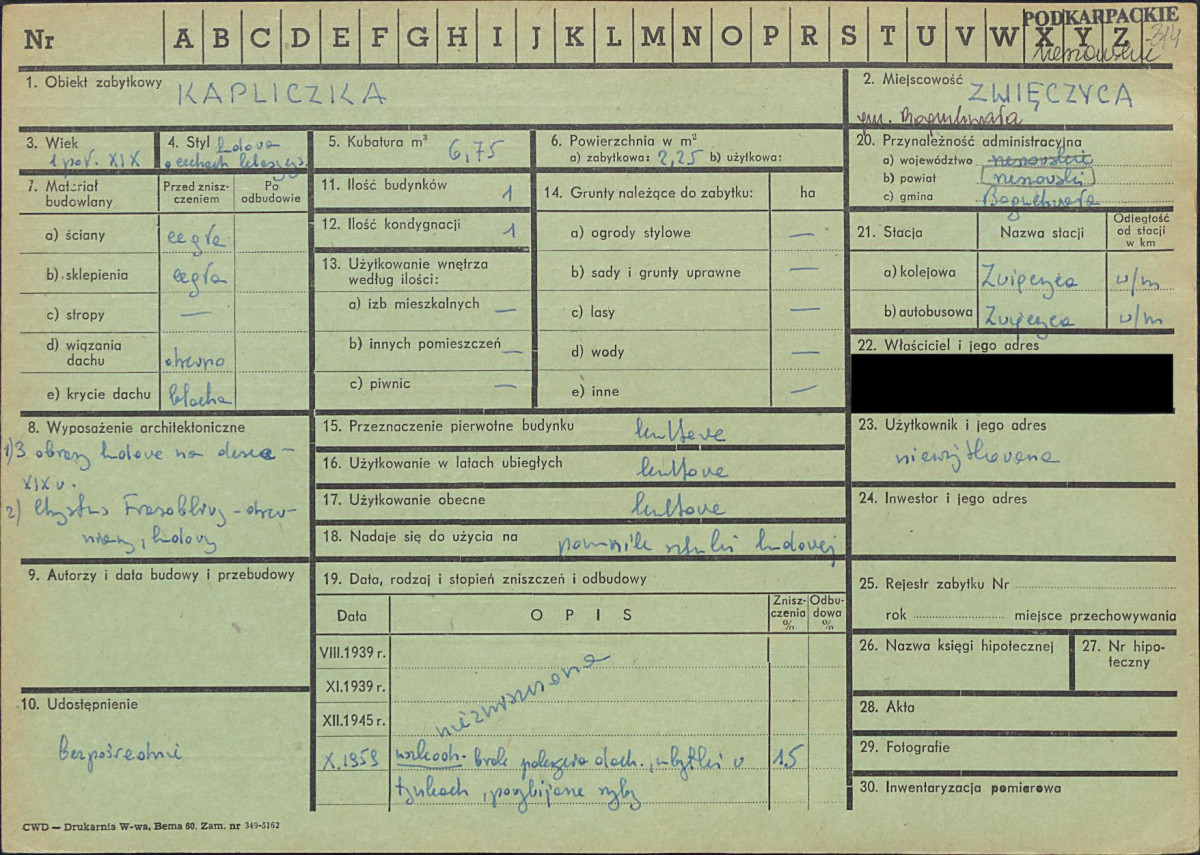 Nr A B C D E F G H I J K L M N O P R S T U V W X Y Z
PODKARPACKIE
314
1. Obiekt zabytkowy KAPLICZKA
2. Miejscowość ZWIĘCZYCA
gm. Boguchwała
3. Wiek
1 poł. XIX
4. Styl ludowa
o cechach
5. Kubatura m³ 6,75
6. Powierzchnia w m²
a) zabytkowa: 2,25 b) użytkowa:
20. Przynależność administracyjna
a) województwo rzeszowskie
b) powiat rzeszowski
c) gmina Boguchwała
7. Materiał budowlany
Przed zniszczeniem
Po odbudowie
a) ściany cegła
b) sklepienia cegła
c) stropy —
d) wiązania dachu drewno
e) krycie dachu blacha
11. Ilość budynków 1
12. Ilość kondygnacji 1
13. Użytkowanie wnętrza według ilości:
a) izb mieszkalnych —
b) innych pomieszczeń —
c) piwnic —
14. Grunty należące do zabytku: ha
a) ogrody stylowe —
b) sady i grunty uprawne —
c) lasy —
d) wody —
e) inne —
21. Stacja
Nazwa stacji
Odległość od stacji w km
a) kolejowa Zwięczyca w/m
b) autobusowa Zwięczyca w/m
22. Właściciel i jego adres
8. Wyposażenie architektoniczne
1) 3 obrazy ludowe na desce -
XIX w.
2) Chrystus Frasobliwy - drew-
niany, ludowy
15. Przeznaczenie pierwotne budynku kultowe
16. Użytkowanie w latach ubiegłych kultowe
17. Użytkowanie obecne kultowe
18. Nadaje się do użycia na pomnik sztuki ludowej
23. Użytkownik i jego adres
nieużytkowana
24. Inwestor i jego adres
9. Autorzy i data budowy i przebudowy
19. Data, rodzaj i stopień zniszczeń i odbudowy
Data
OPIS
Zniszczenia %
Odbudowa %
VIII.1939 r.
XI.1939 r.
XII.1945 r.
niezniszczona
X.1959 brak pokrycia dach., ubytki w 15
tynkach, powybijane szyby
25. Rejestr zabytku Nr
rok miejsce przechowywania
26. Nazwa księgi hipotecznej
27. Nr hipoteczny
10. Udostępnienie
bezpośrednie
28. Akta
29. Fotografie
30. Inwentaryzacja pomiarowa
CWD — Drukarnia W-wa, Bema 60. Zam. nr 349-5162